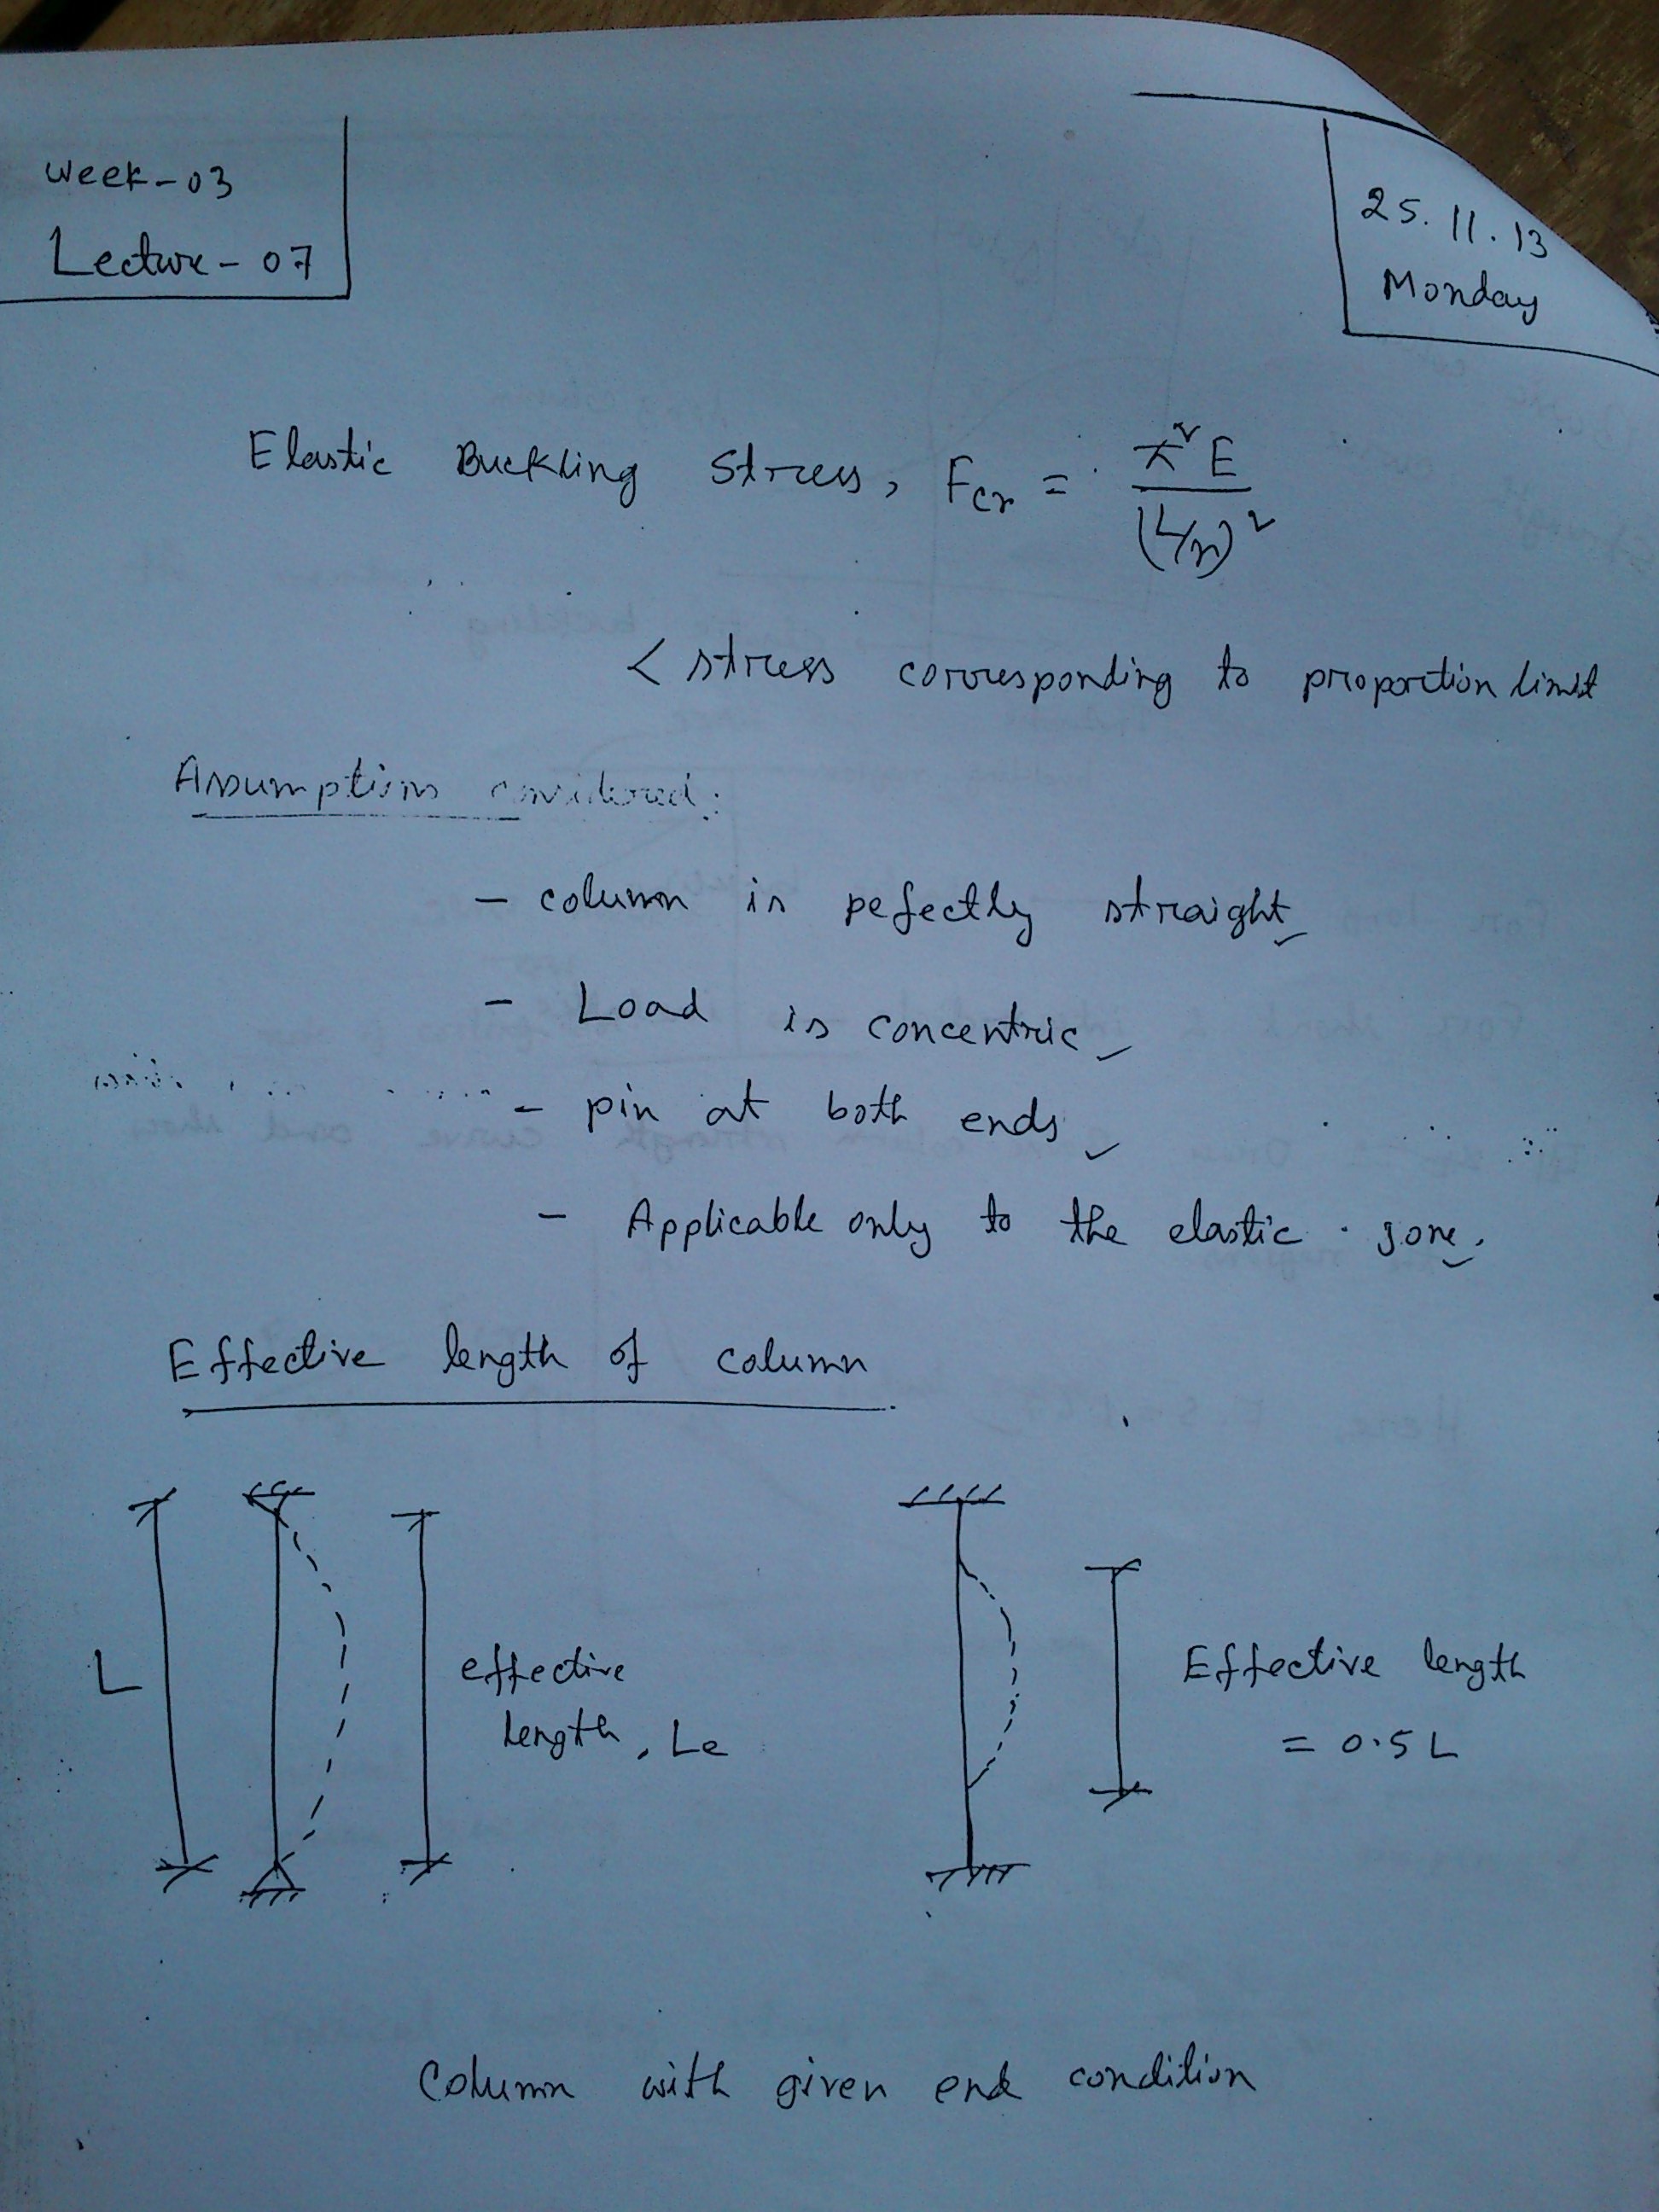 week-03
Lecture-07
25.11.13
Monday
Elastic Buckling Stress, Fcr = π²E / (L/r)²
< stress corresponding to proportion limit
Assumptions considered:
- column is pefectly straight
- Load is concentric
- pin at both ends
- Applicable only to the elastic zone.
Effective length of column
L
effective length, Le
Effective length = 0.5L
Column with given end condition